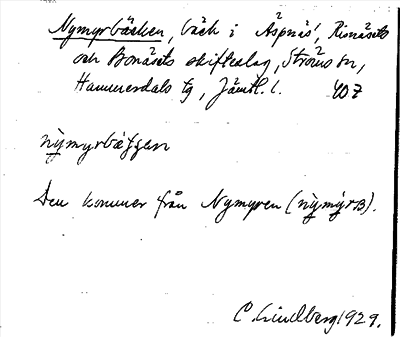 Nymyrbäcken, bäck i Äspnäs, Risnäsets
och Bonäsets skifteslag, Ströms sn,
Hammerdals tg, Jämtl. l. 407
nỳmyrbèʃʃen
Den kommer från Nymyren (nỳmýrɴ).
C. Lindberg 1929.